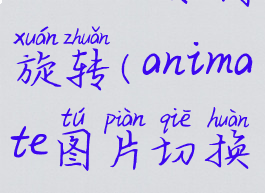 xuán zhuǎn
旋转(anima
tú piàn qiē huàn
te图片切换